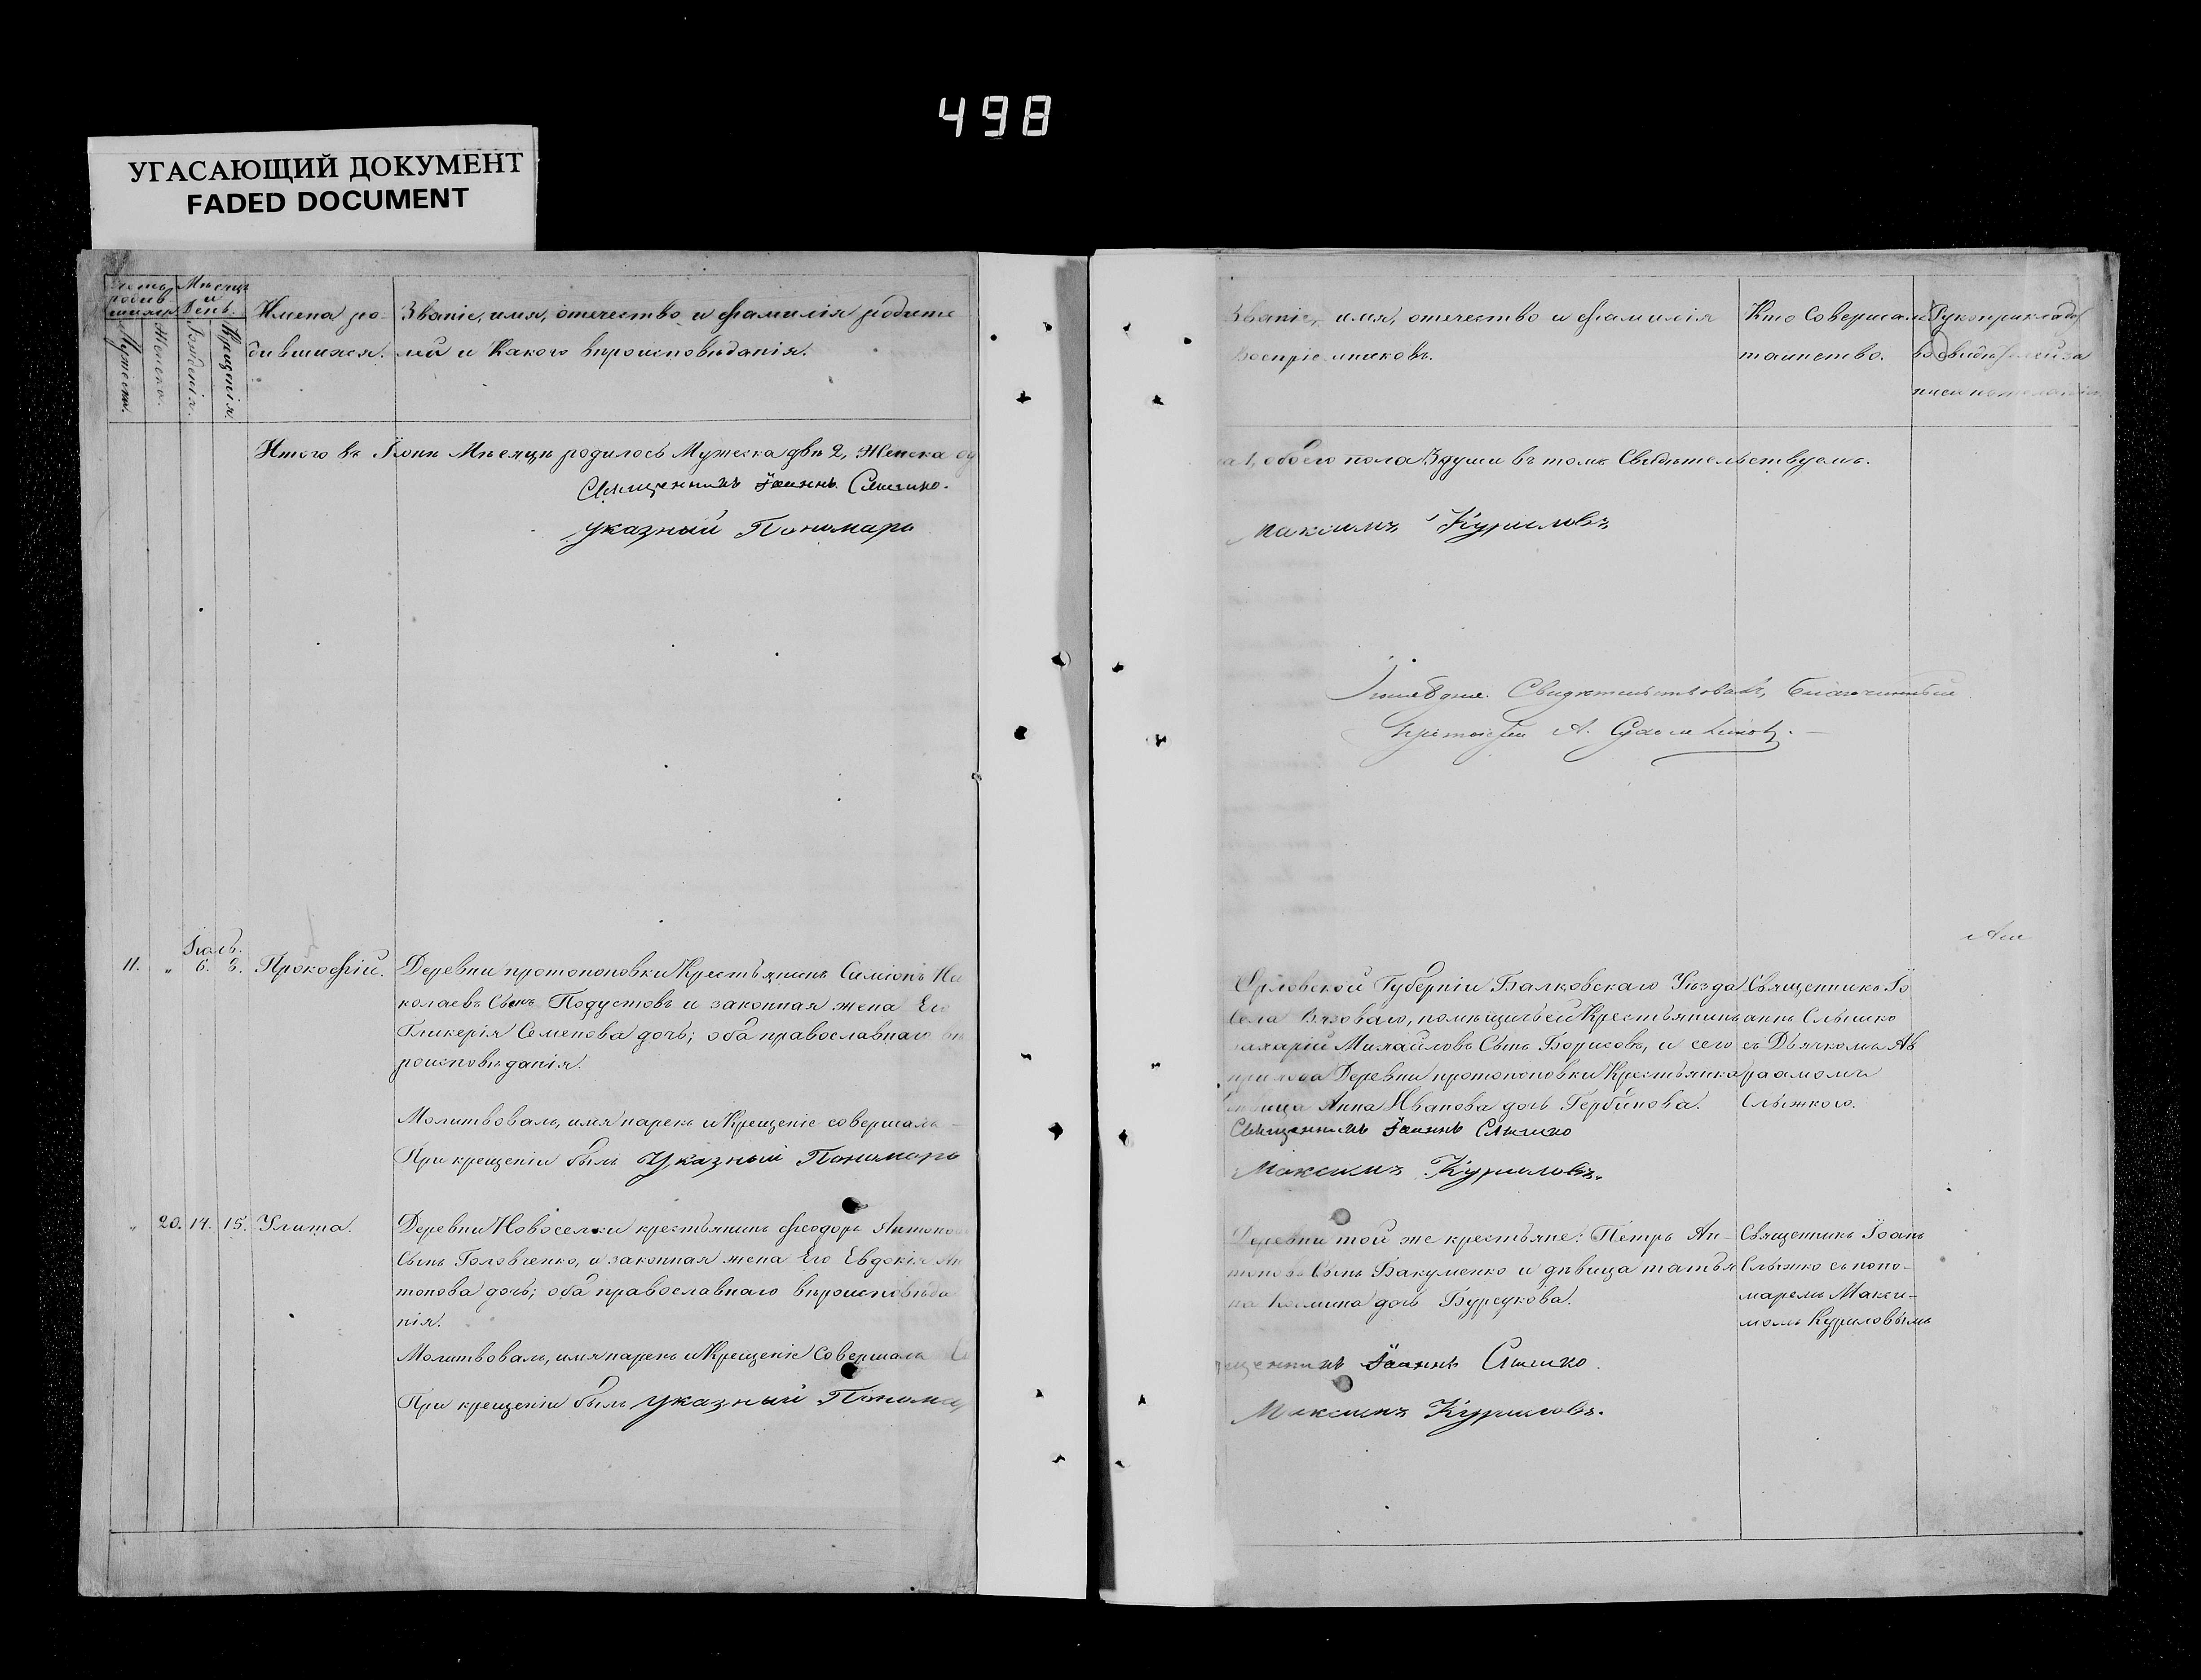 498
УГАСАЮЩИЙ ДОКУМЕНТ
FADED DOCUMENT
Мѣсяцъ
и
День.
Имена ро-
дившихся.
Званіе, имя, отечество и фамилія родите
лей и какого вѣроисповѣданія.
Мужеска.
Женска.
Рожденія.
Крещенія.
Итого въ Іюнѣ Мѣсяцѣ родилось Мужеска двѣ 2, Женска
Священникъ Іоаннъ
указный Пономарь
Іюль.
11. „ 6. 8. Прокофій.
Деревни Протопоповки Крестьянинъ Симіонъ Ни
колаевъ Сынъ Подустовъ и законная жена Его
Гликерія Семенова дочь; оба православнаго вѣ
роисповѣданія.
Молитвовалъ, имя нарекъ и Крещеніе совершалъ
При крещеніи былъ Указный Пономарь
„ 20. 14. 15. Улита.
Деревни Новоселки крестьянинъ Феодоръ Антоновъ
Сынъ Головченко, и законная жена Его Евдокія Ан
тонова дочь; оба православнаго вѣроисповѣда
нія.
Молитвовалъ, имя нарекъ и Крещеніе Совершалъ
При крещеніи былъ указный Понома
Званіе, имя, отечество и фамилія
Воспріемниковъ.
Кто Совершалъ
таинство.
Рукоприклад
1, обоего пола 3 души въ томъ Свидѣтельствуемъ.
Максимъ Куриловъ
Свидѣтельствовалъ, Благочинный
А.
Губерніи Валковскаго Уѣзда
Села помѣщичьей Крестьянинъ
Михайловъ Сынъ Борисовъ, и сего
Деревни Протопоповки Крестьянка
Анна Иванова дочь
Священникъ Іоаннъ
Максимъ Куриловъ.
Священникъ Іо
аннъ
съ Дьячкомъ Ав
раамомъ
Деревни той же крестьяне: Петръ Ан-
тоновъ Сынъ Бакуменко и дѣвица Татья
на дочь Бурсукова.
щенникъ Іоаннъ
Максимъ Куриловъ.
Священникъ Іоанъ
съ поно-
маремъ Макси-
момъ Куриловымъ